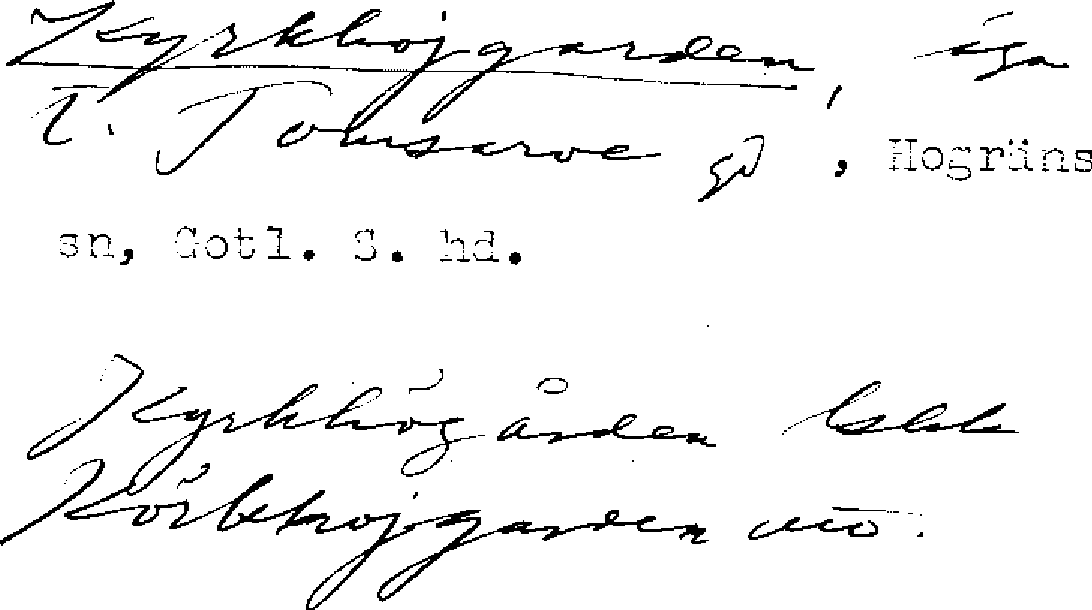 Kyrkhojgarden, äga
t. Tomsarve gd, Hogräns
sn, Gotl. S. hd.
Kyrkhögården
Körkhojgarden